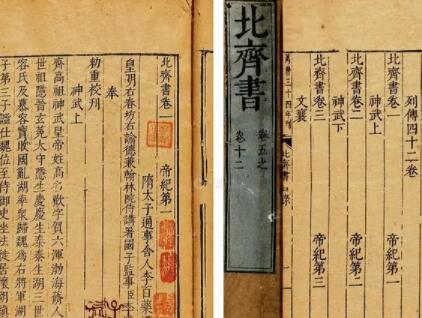 北齊書卷一　帝紀第一
隋太子通事舍人李百藥
皇明右春坊右諭德兼翰林院侍講署國子監事臣李
奉
勅重校刊
神武上
齊高祖神武皇帝姓高名歡字賀六渾渤海蓨人
世祖隱晉玄菟太守隱生慶慶生泰泰生湖三世
容氏及慕容寶敗國亂湖率衆歸魏爲右將軍湖
子第三子謐仕魏位至侍御史坐法徙居懷朔鎮
北齊書
卷五之
卷十二
列傳四十二卷
北齊書卷一　帝紀第一
神武上
北齊書卷二　帝紀第二
神武下
北齊書卷三　帝紀第三
文襄